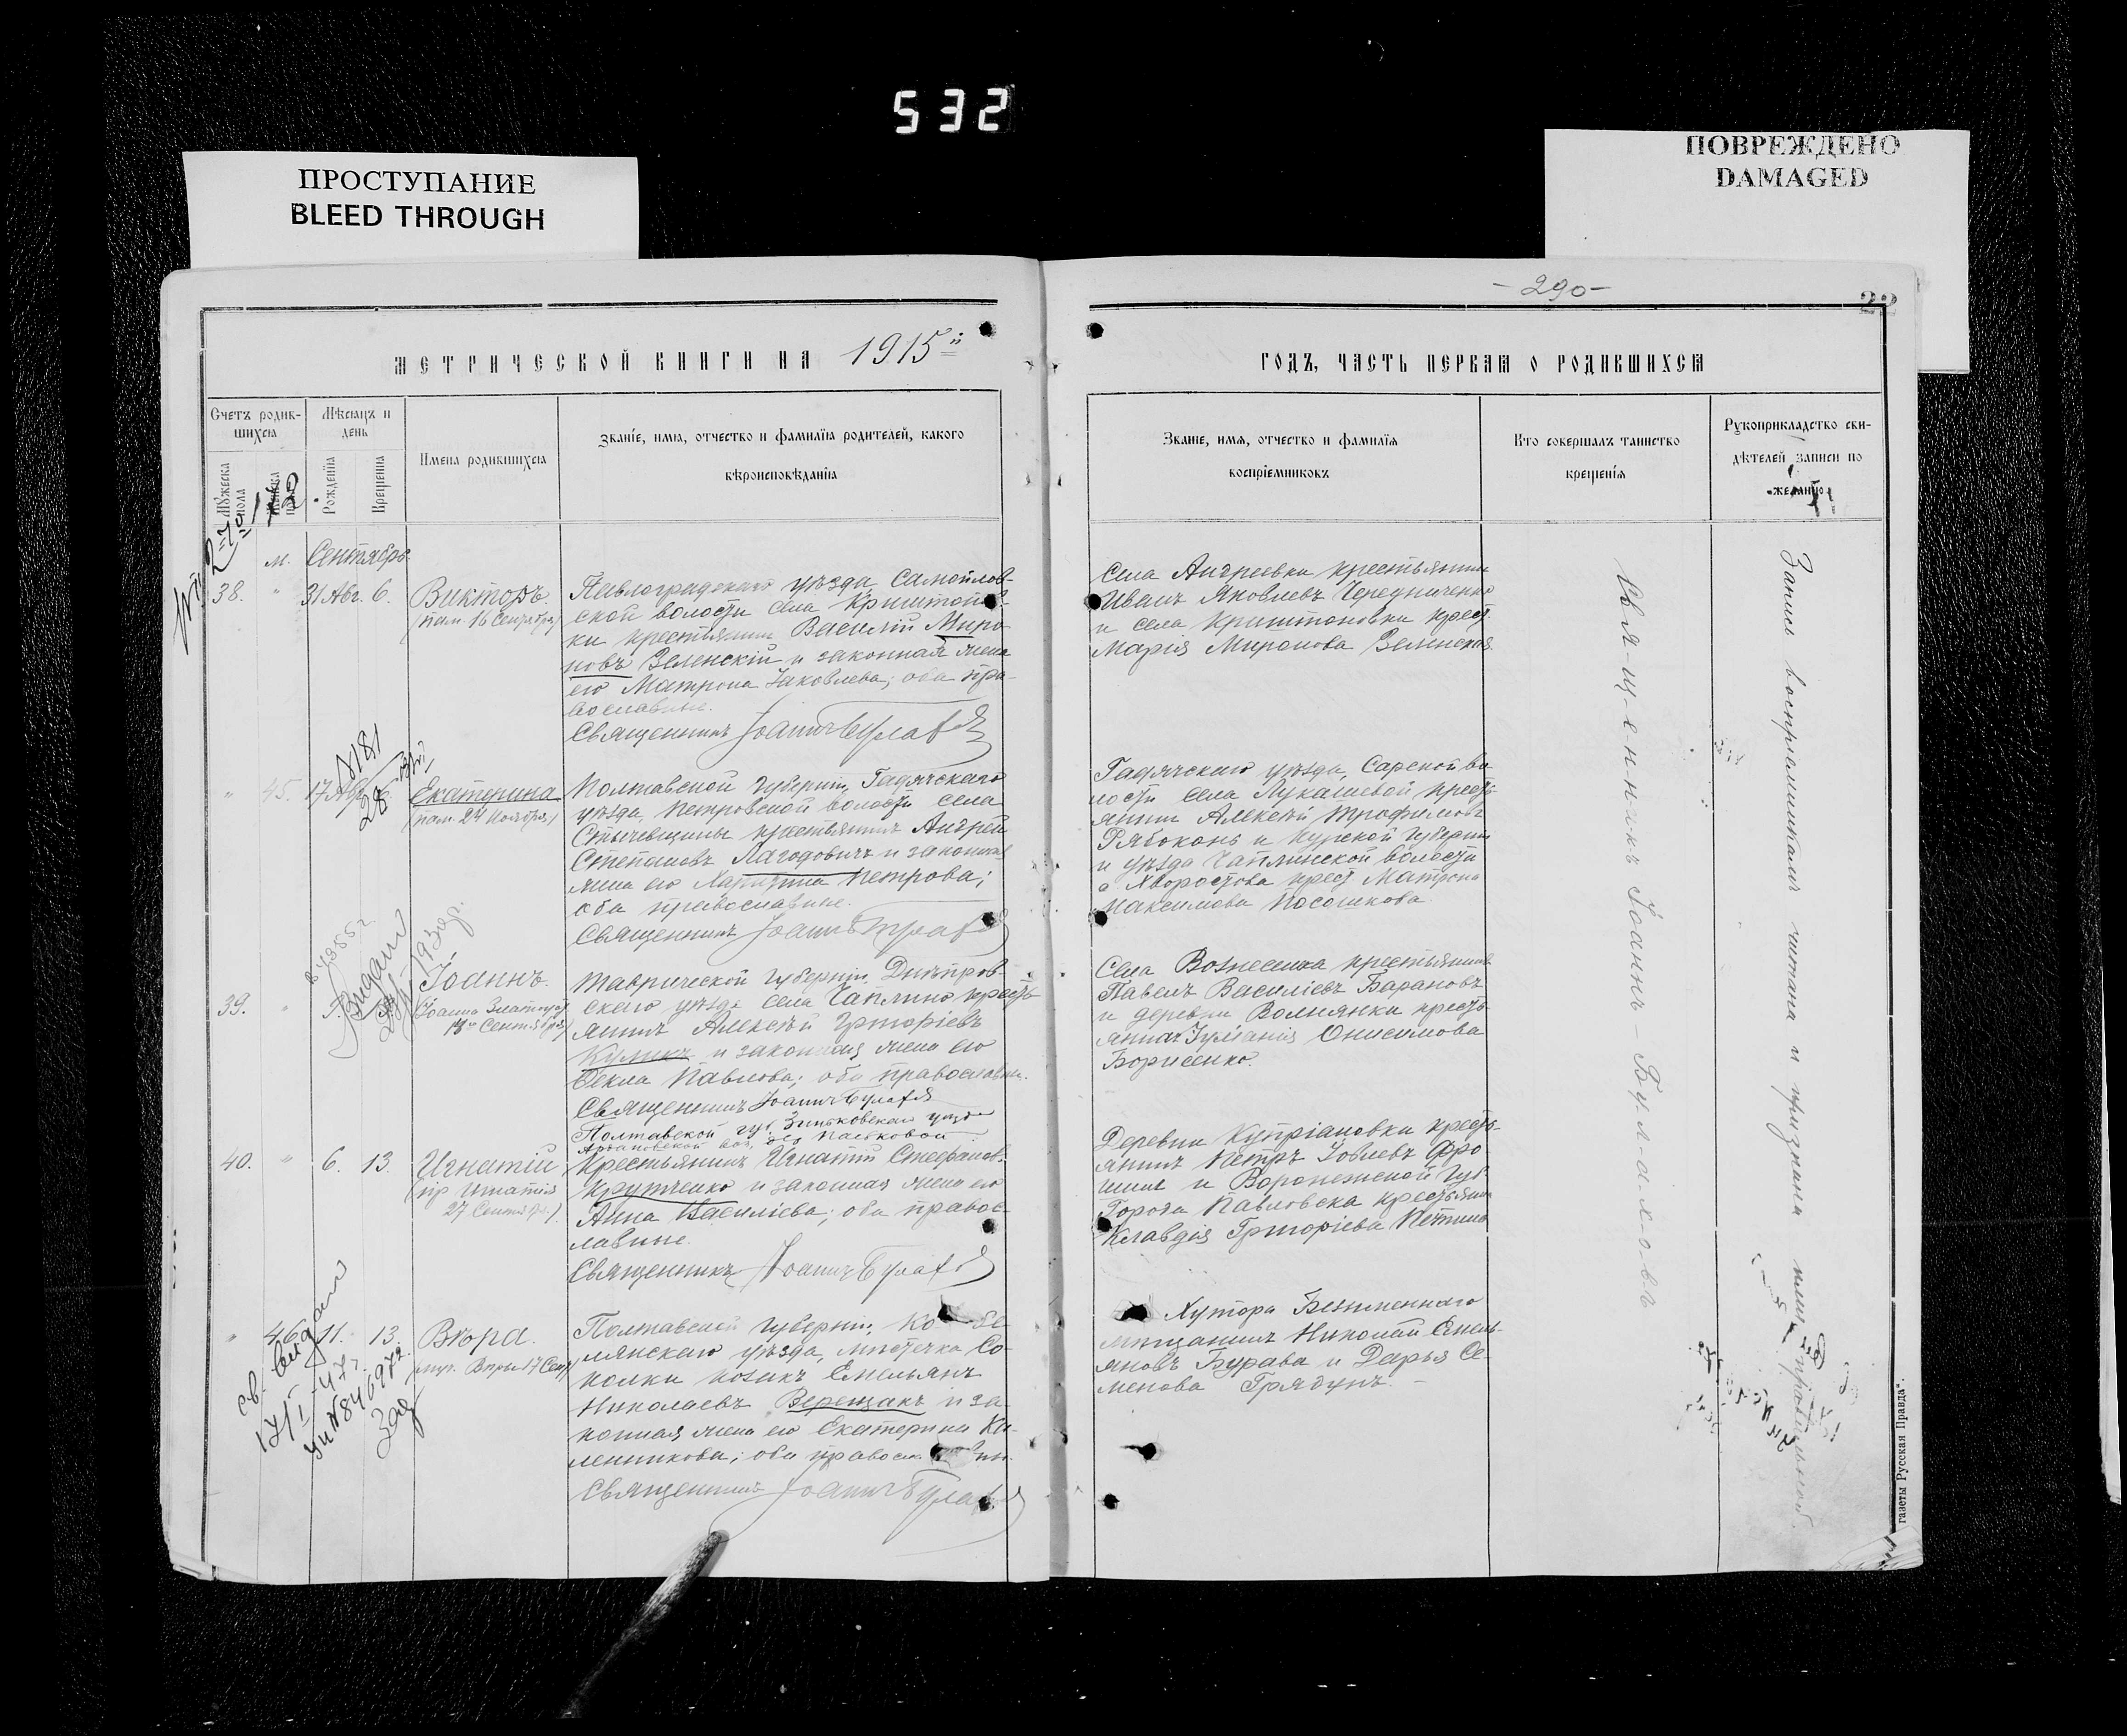 532
ПРОСТУПАНИЕ
BLEED THROUGH
ПОВРЕЖДЕНО
DAMAGED
- 290 -
22
МЕТРИЧЕСКОЙ КНИГИ НА 1915й
ГОДЪ, ЧАСТЬ ПЕРВАЯ О РОДИВШИХСЯ
Счетъ родив-
шихся
Мѣсяцъ и
день
Мужеска
пола
Рожденія
Крещенія
Имена родившихся
Званіе, имя, отчество и фамилія родителей, какого
вѣроисповѣданія
Званіе, имя, отчество и фамилія
воспріемниковъ
Кто совершалъ таинство
крещенія
Рукоприкладство сви-
дѣтелей записи по
желанію
м. Сентябрь
38. " 31 Авг. 6. Викторъ.
(пам. 16 Сентября)
Павлоградскаго уѣзда, Самойлов-
ской волости села Криштопов-
ки крестьянинъ Василій Миро-
новъ Зеленскій и законная жена
его Матрона Іаковлева; оба пра-
вославные.
Священникъ Іоаннъ Булаховъ
Села Андреевки крестьянинъ
Иванъ Яковлевъ Чередниченко
и села Криштоповки крест.
Марія Миронова Зеленская.
" 45. 17 Авг. Екатерина
(пам. 24 Ноября)
Полтавской губерніи, Гадячскаго
уѣзда, Петровской волости села
крестьянинъ Андрей
Степановъ Лагодовичъ и законная
жена его Харитина Петрова;
оба православные.
Священникъ Іоаннъ Булаховъ
Гадячскаго уѣзда, Сарской во-
лости села Лукашевой кресть-
янинъ Алексѣй Трофимовъ
Рябоконь и Курской губерніи
и уѣзда Чаплинской волости
с Хворостова крест Матрона
Максимова Посошкова.
39. " Іоаннъ.
(Іоанна Златоуста
13го Сентября)
Таврической губерніи, Днѣпров-
скаго уѣзда села Чаплино кресть-
янинъ Алексѣй Григоріевъ
Куликъ и законная жена его
Ѳекла Павлова; оба православны.
Священникъ Іоаннъ Булаховъ
Села Вознесенка крестьянинъ
Павелъ Василіевъ Барановъ
и деревни Волнянки кресть-
янка Іуліанія Онисимова
Борисенко.
Полтавской губ. Зиньковскаго уѣзда
40. " 6. 13. Игнатій
(пр Игнатія
27 Сентября)
Крестьянинъ Игнатій Стефанов.
Крутченко и законная жена его
Анна Василіева; оба правос-
лавные.
Священникъ Іоаннъ Булаховъ
Деревни Купріановки кресть-
янинъ Петръ Іовлевъ
и Воронежской губ.
города Павловска крестьянка
Клавдія Григоріева
" 46 11. 13. Вѣра.
(муч. Вѣры 17 Сент)
Полтавской губерніи,
уѣзда, мѣстечка Со-
колки козакъ Емельянъ
Николаевъ Верещакъ и за-
конная жена его Екатерина
оба правосл
Священникъ Іоаннъ Булаховъ
Хутора Безыменнаго
мѣщанинъ Николай Емель-
яновъ Бурава и Дарья Се-
менова Грядунъ. –
Священникъ Іоаннъ – Булаховъ
Запись воспріемникамъ читана и признана ими правильной.
св. выдано
17/I-47г
846972
Заг
газеты Русская Правда".